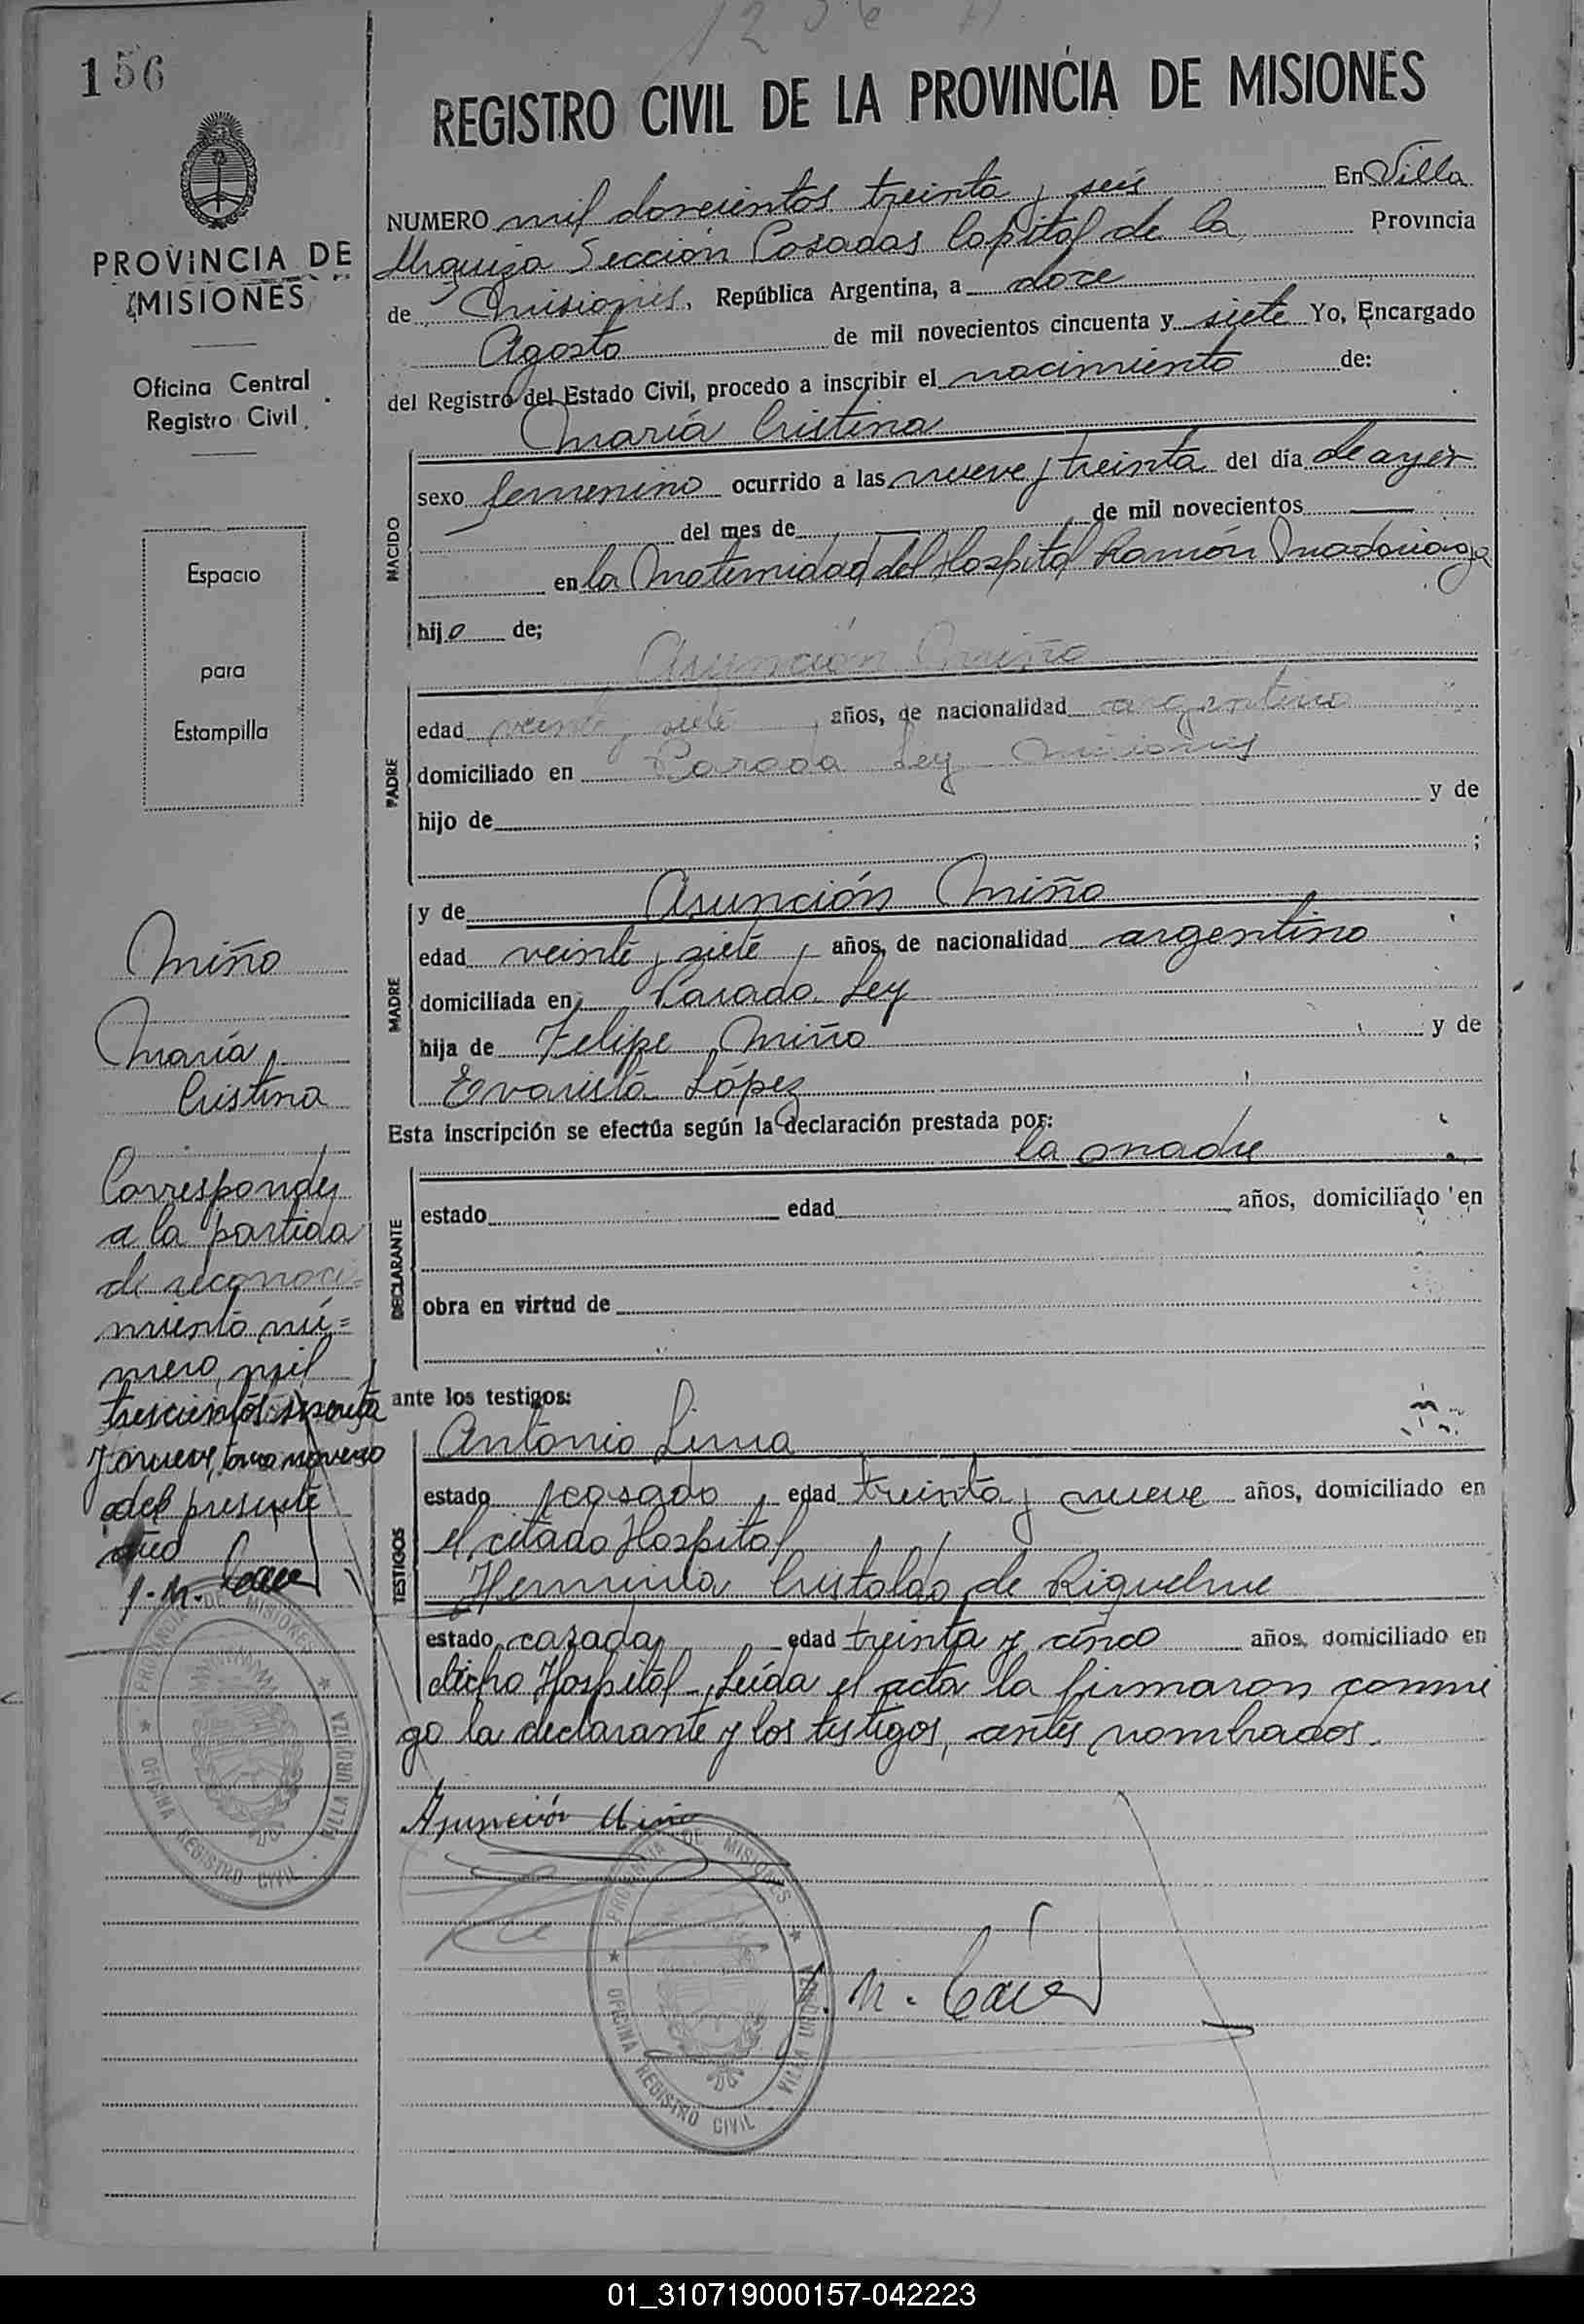 156
PROVINCIA DE
MISIONES
Oficina Central
Registro Civil
Espacio
para
Estampilla
Miño
María
Cristina
Corresponde
a la partida
de reconoci=
miento nú=
mero mil
trescientos sesenta
y nueve, tomo noveno
del presente
año
PROVINCIA DE MISIONES
OFICINA REGISTRO CIVIL VILLA URQUIZA
REGISTRO CIVIL DE LA PROVINCIA DE MISIONES
NUMERO mil doscientos treinta y seis En Villa
Urquiza Sección Posadas Capital de la Provincia
de Misiones, República Argentina, a doce
Agosto de mil novecientos cincuenta y siete Yo, Encargado
del Registro del Estado Civil, procedo a inscribir el nacimiento de:
María Cristina
NACIDO
sexo femenino ocurrido a las nueve y treinta del día de ayer
del mes de de mil novecientos
en la Maternidad del Hospital Ramón Madariaga
hijo de;
PADRE
Asunción Miño
edad veinte y siete años, de nacionalidad argentino
domiciliado en Parada Ley Misiones
hijo de y de
;
MADRE
y de Asunción Miño
edad veinte y siete años, de nacionalidad argentino
domiciliada en Parada Ley
hija de Felipe Miño y de
Evarista López
Esta inscripción se efectúa según la declaración prestada por:
la madre
DECLARANTE
estado edad años, domiciliado en
obra en virtud de
ante los testigos:
TESTIGOS
Antonio Lima
estado casado edad treinta y nueve años, domiciliado en
el citado Hospital
Herminia Cristaldo de Riquelme
estado casada edad treinta y cinco años, domiciliado en
dicho Hospital - Leída el acta la firmaron conmi
go la declarante y los testigos, antes nombrados.
Asunción Miño
PROVINCIA DE MISIONES
OFICINA REGISTRO CIVIL VILLA URQUIZA
01_310719000157-042223